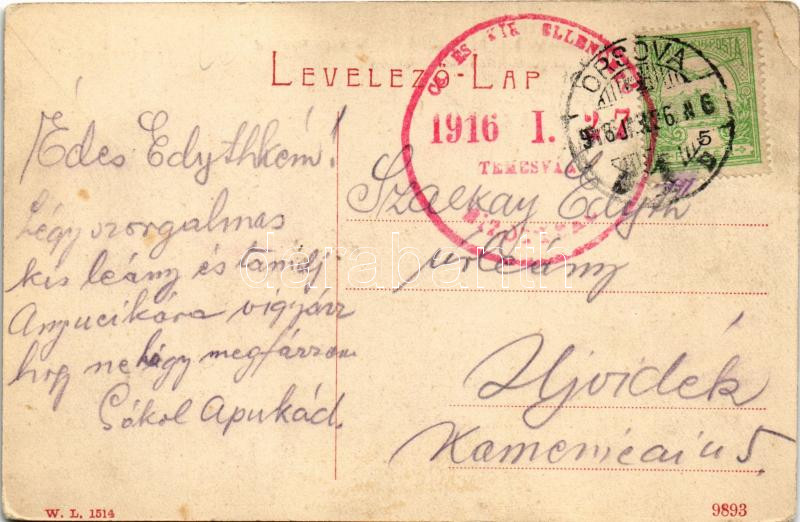 LEVELEZŐ-LAP
CS. ÉS KIR. ELLEN
1916 I. 27
TEMESVÁR
BIZOTTSÁG
ORSOVA
916 JAN. 26. N 6
POSTA
5
Édes Edythkém!
Légy szorgalmas
kis leány és tanulj
Anyucikára vigyázz
hogy ne hagy megfázzon
Csókol Apukád.
Szalkay Edyth
urleány
Ujvidék
Kamenicai u 5
darabanth
W. L. 1514
9893